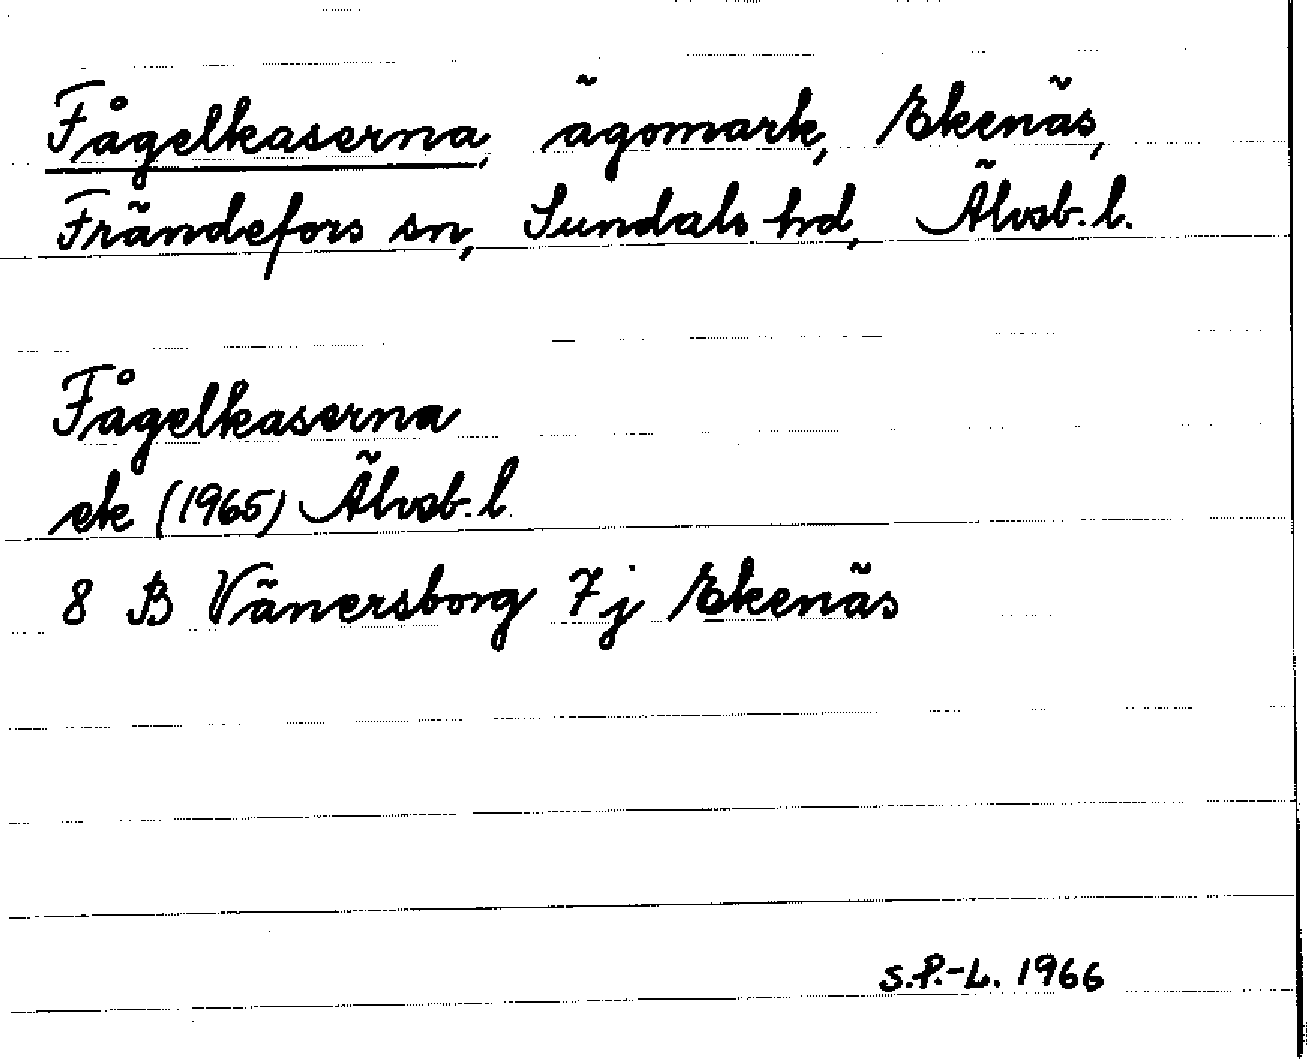 Fågelkaserna, ägomark, Ekenäs,
Frändefors sn, Sundals hd, Älvsb. l.
Fågelkaserna
ek (1965) Älvsb. l.
8 B Vänersborg 7j Ekenäs
S.P.-L. 1966